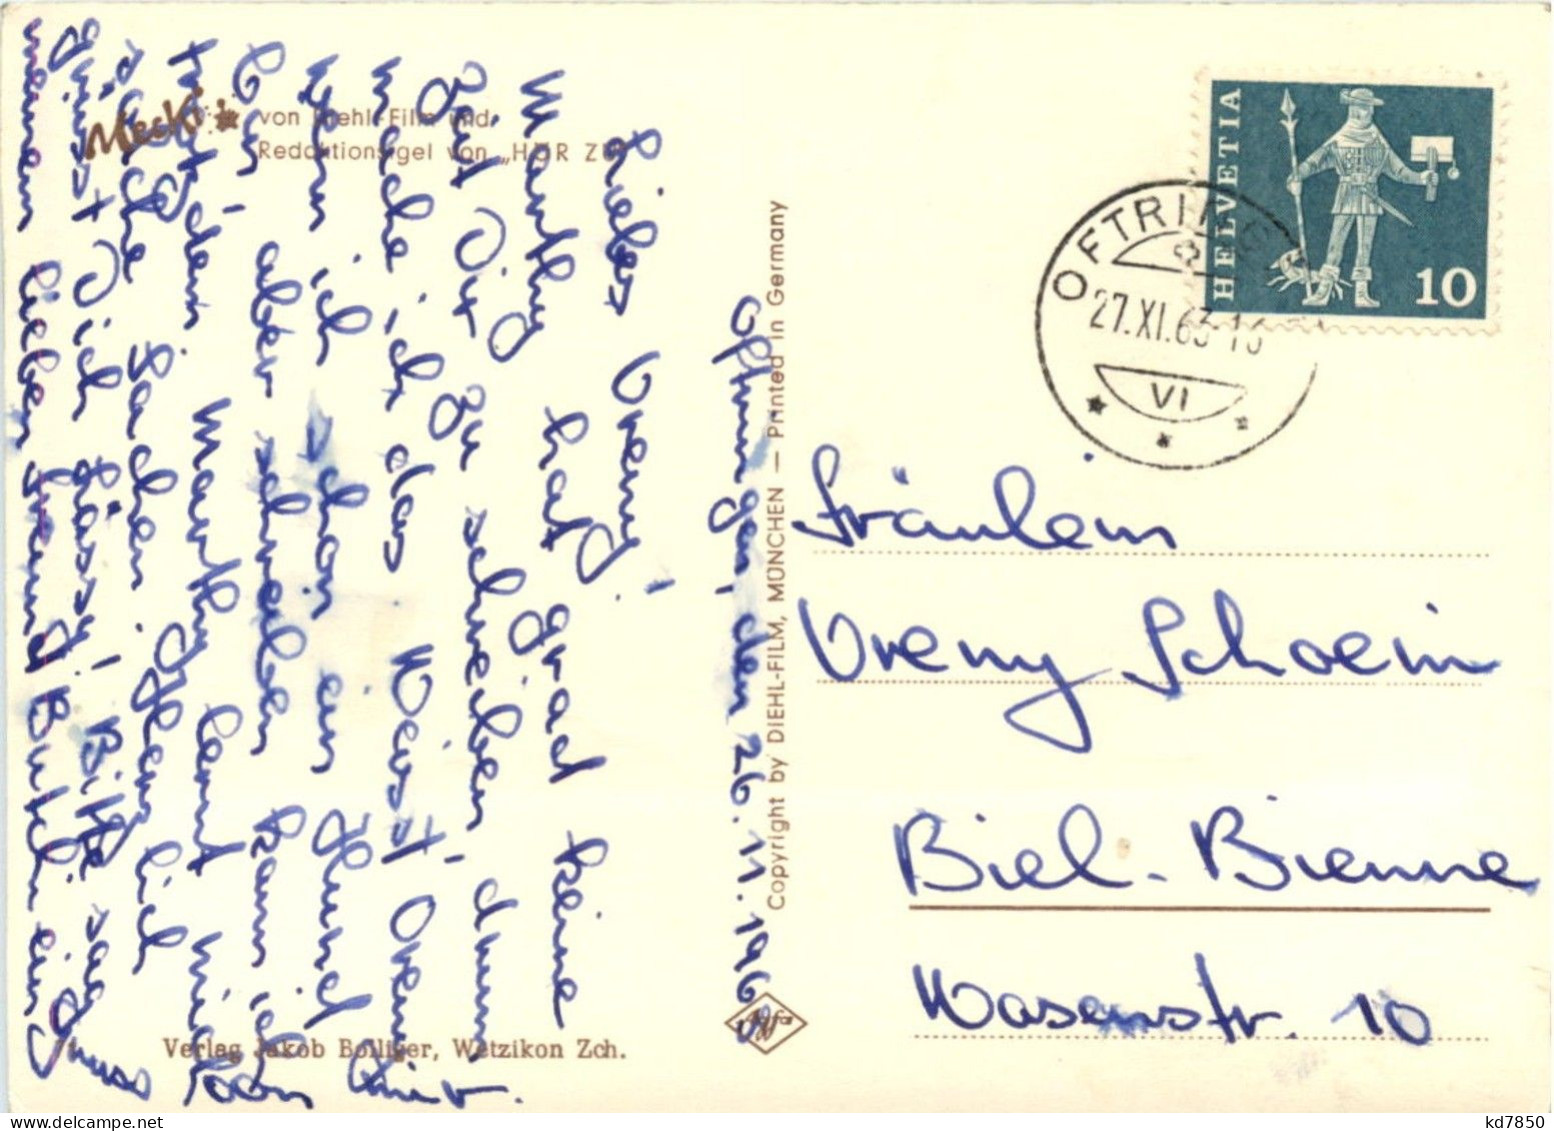 Mecki
von Diehl-Film und
Redaktionsigel von „HÖR ZU"
Oftringen, den 26. 11. 196
Liebes Vreny!
Marthy hat grad keine
Zeit Dir zu schreiben, drum
mache ich das. Weisst Vreni
wenn ich schon ein Hund
bin, aber schreiben kann ich
trotzdem. Marthy lernt mich
Sachen. Herzlich
grüsst Dich Bitte sag
meinem lieben Freund einen
Gruss von
Verlag Jakob Bolliger, Wetzikon Zch.
Copyright by DIEHL-FILM, MÜNCHEN — Printed in Germany
HELVETIA
10
OFTRINGEN
27.XI.63-16
VI
Fräulein
Vreny Schoeni
Biel-Bienne
Wasenstr. 10
kd7850